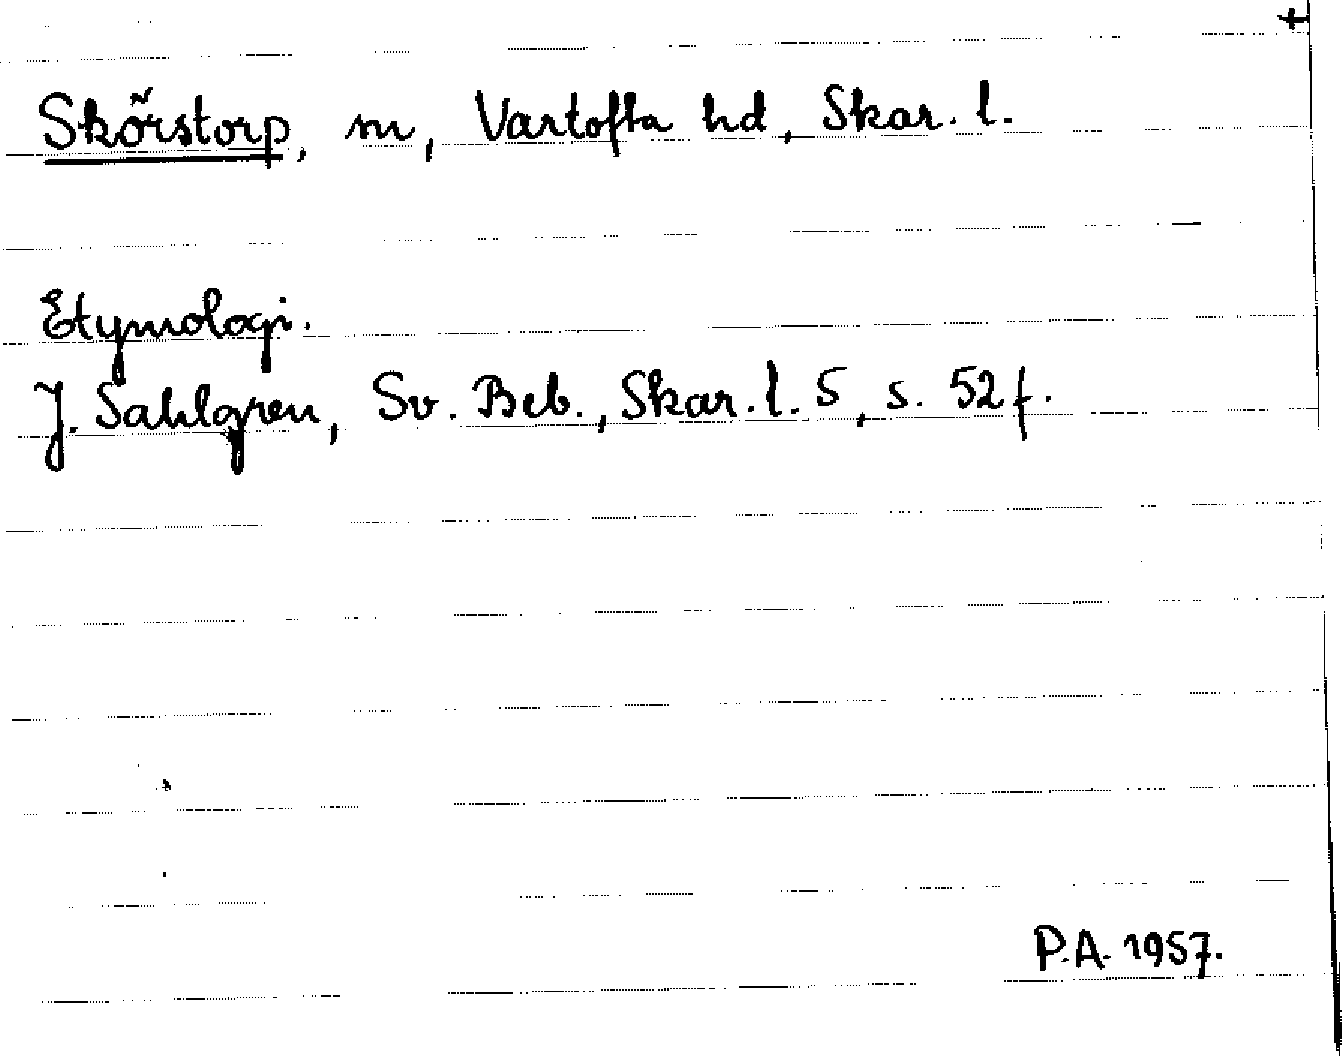 +
Skörstorp, sn, Vartofta hd, Skar. l.
Etymologi.
J. Sahlgren, Sv. Beb., Skar. l. 5, s. 52 f.
P.A. 1957.